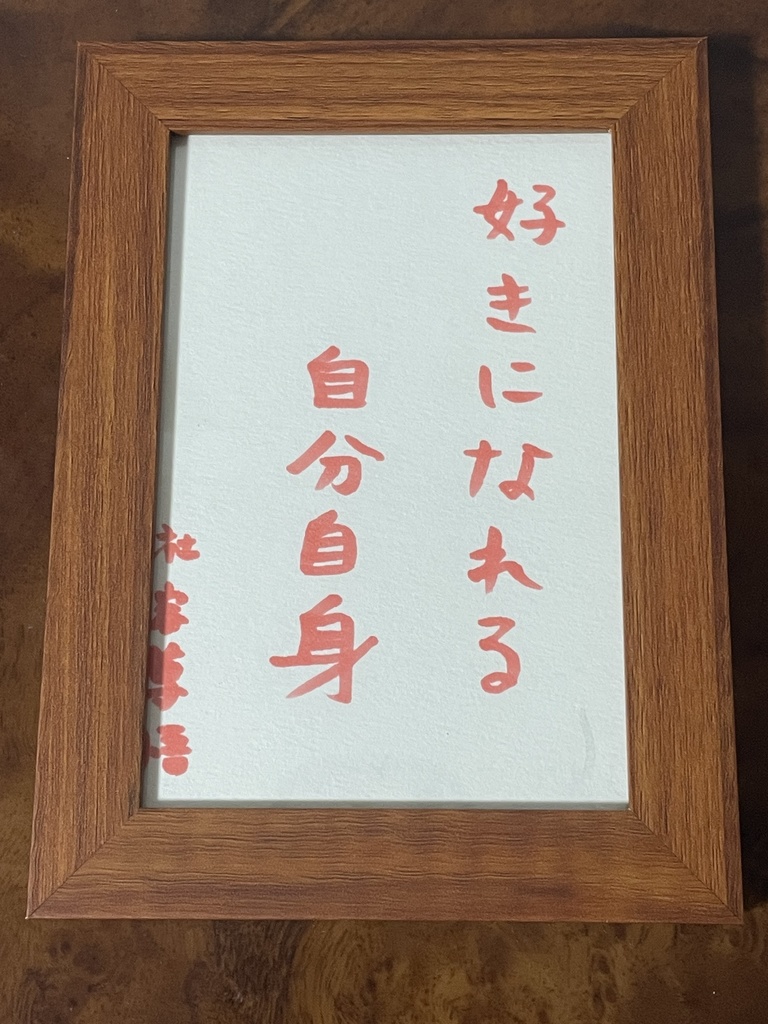 好きになれる
自分自身